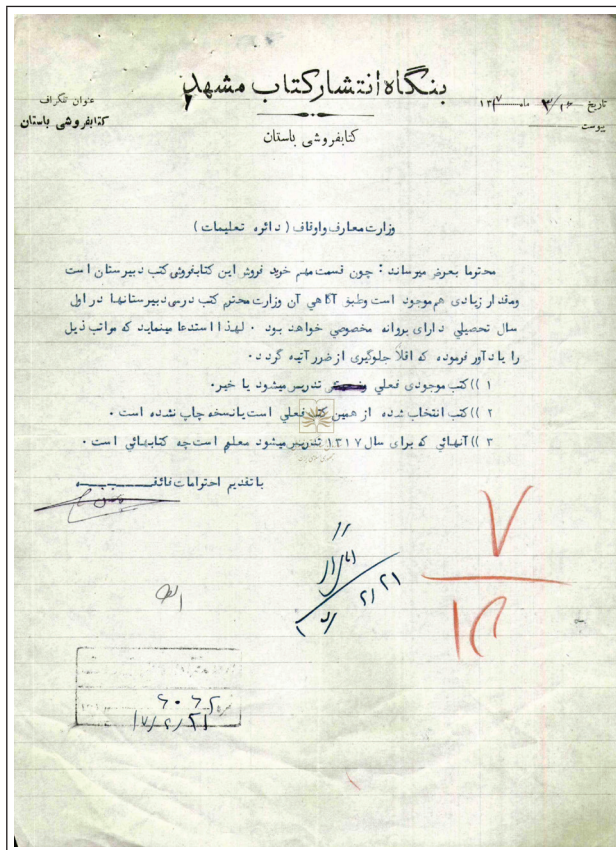 بنگاه انتشار کتاب مشهد
کتابفروشی باستان
عنوان تلگراف
کتابفروشی باستان
تاریخ ماه ۱۳۱۷
پیوست
وزارت معارف و اوقاف ( دائره تعلیمات )
محترما بعرض میرساند : چون قسمت مهم خرید فروش این کتابفروشی کتب دبیرستان است
ومقدار زیادی هم موجود است وطبق آگاهی آن وزارت محترم کتب درسی دبیرستانها در اول
سال تحصیلی دارای پروانه مخصوصی خواهد بود . لهذا استدعا مینماید که مراتب ذیل
را یادآور فرموده که اقلاً جلوگیری از ضرر آتیه گردد .
۱ )) کتب موجودی فعلی تدریس میشود یا خیر .
۲ )) کتب انتخاب شده از همین کتب فعلی است یا نسخه چاپ نشده است .
۳ )) آنهائی که برای سال ۱۳۱۷ تدریس میشود معلم است چه کتابهائی است .
با تقدیم احترامات فائقه
۷
۱۵
۱۷/۲/۲۱